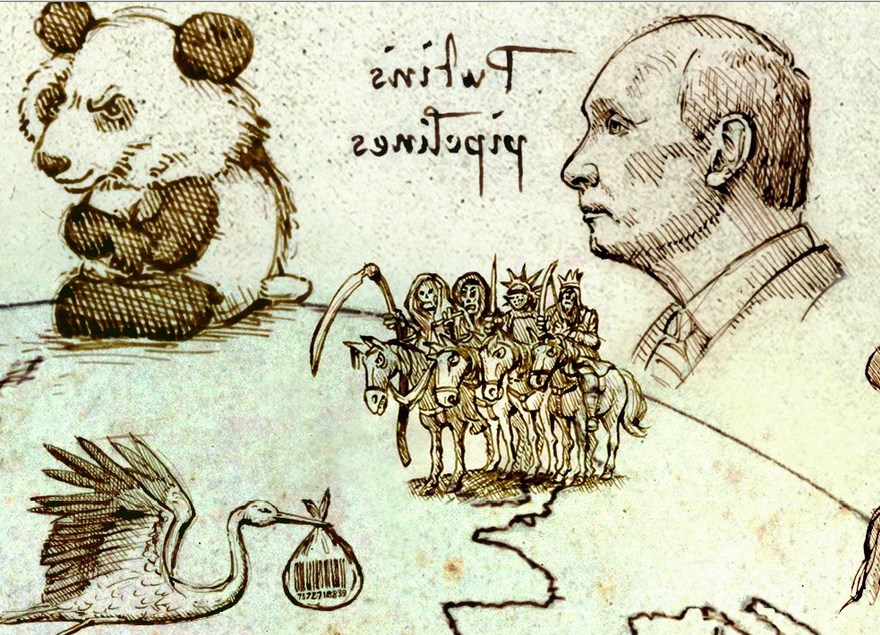 Putin's
pipelines
7172718839